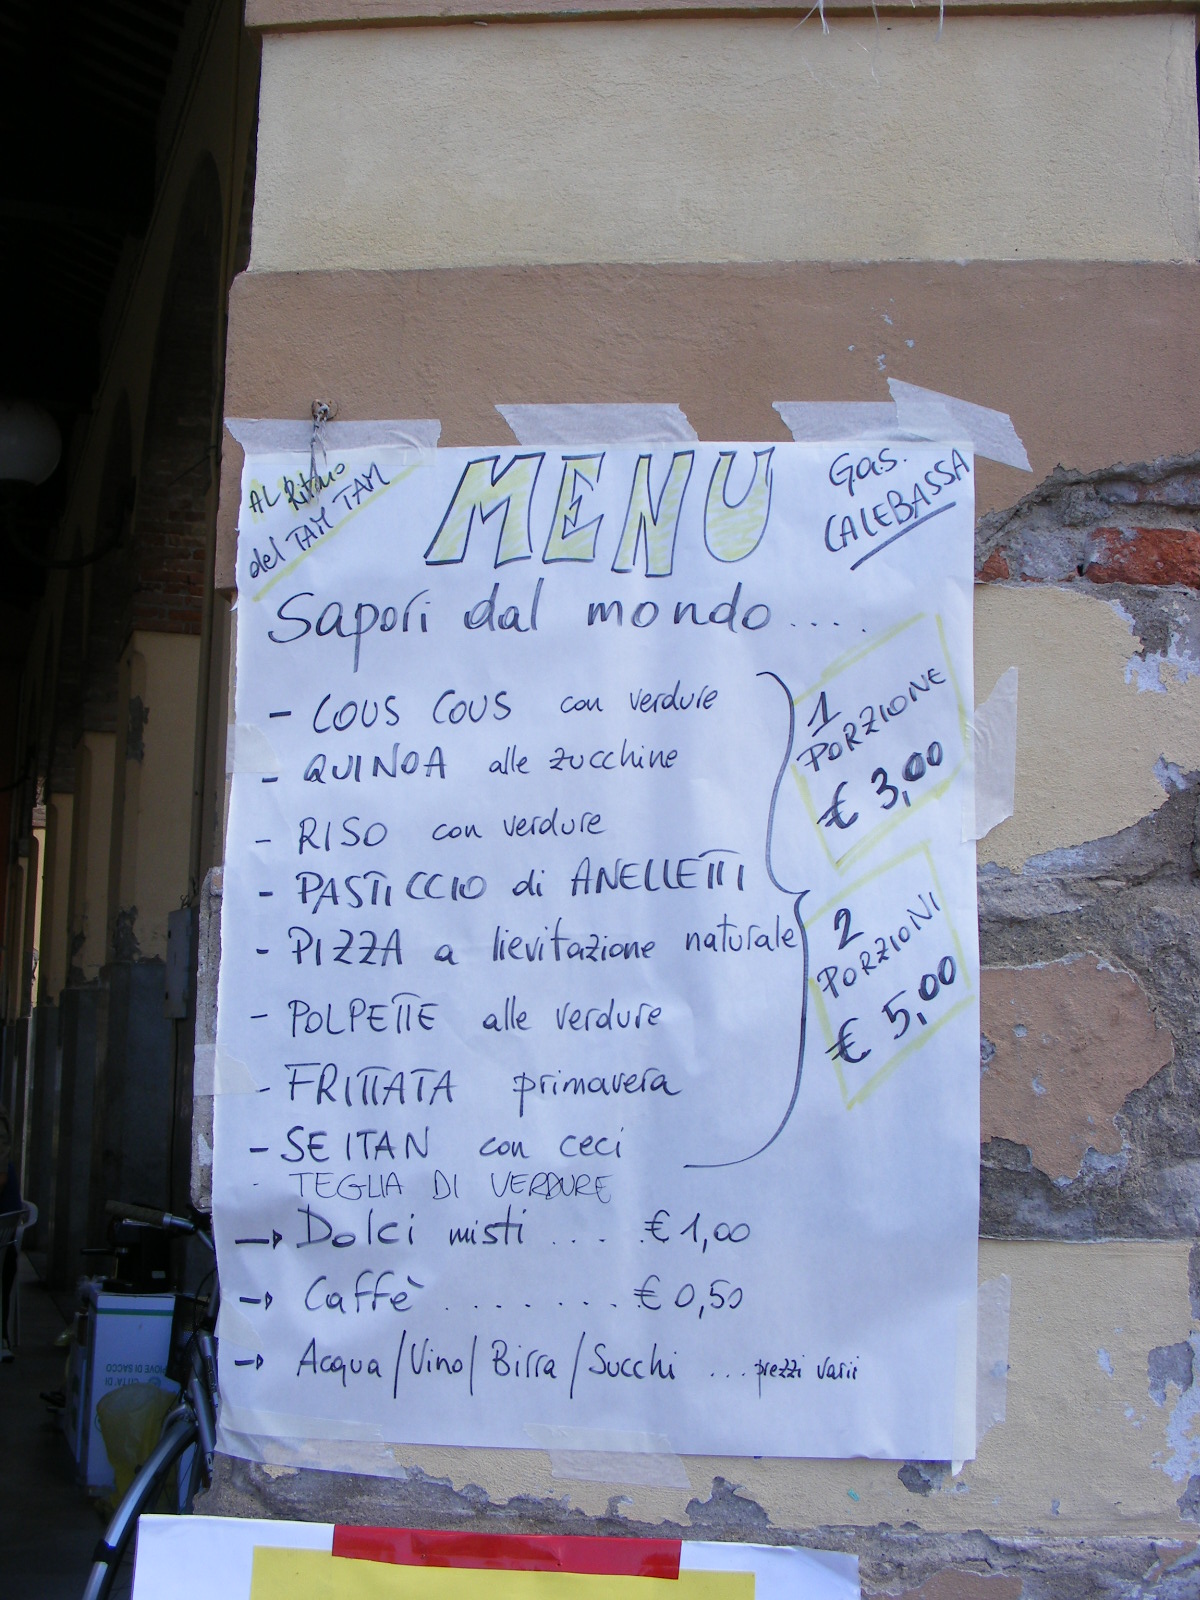 AL Ritmo
del TAM TAM
MENU
Gas.
CALEBASSA
Sapori dal mondo.....
- COUS COUS con verdure
- QUINOA alle zucchine
- RISO con verdure
- PASTICCIO di ANELLETTI
- PIZZA a lievitazione naturale
- POLPETTE alle verdure
- FRITTATA primavera
- SEITAN con ceci
- TEGLIA DI VERDURE
1
PORZIONE
€ 3,00
2
PORZIONI
€ 5,00
→ Dolci misti .... € 1,00
→ Caffè ........ € 0,50
→ Acqua / Vino / Birra / Succhi ... prezzi varii
PIOVE DI SACCO
CITTA' DI